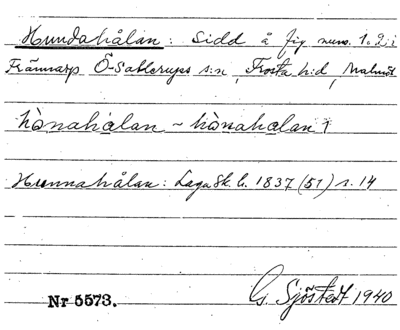 Hundahålan: Sidd å fig num. 1. 2 i
Frännarp Ö-Sallerups s:n, Frosta h:d, Malmöh
hònahàlan ~ hònahalan 1
Hunnahålan: Laga Sk. h. 1837 (51) s. 14
Nr 5573.
G. Sjöstedt 1940